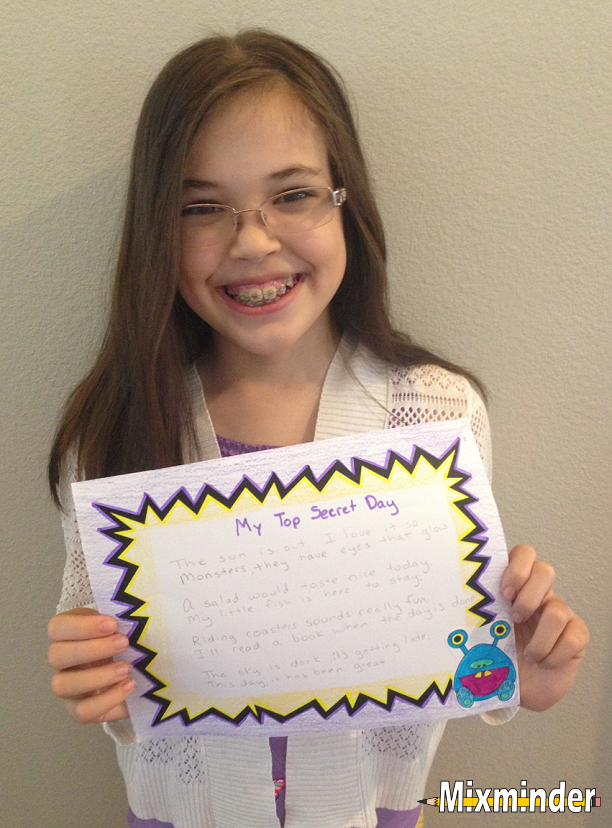 My Top Secret Day
The sun is out I love it so.
Monsters they have eyes that glow
A salad would taste nice today.
My little fish is here to stay.
Riding coasters sounds really fun.
I'll read a book when the day is done
The sky is dark it's getting late.
This day it has been great
Mixminder